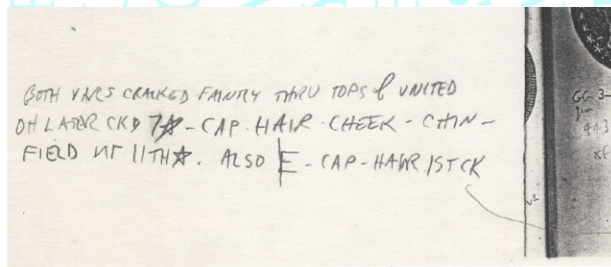 BOTH VARS CRACKED FAINTLY THRU TOPS of UNITED
OH LATER CKD 7☆-CAP-HAIR-CHEEK-CHIN-
FIELD NR 11TH☆. ALSO E-CAP-HAIR 1ST CK
GG 3-